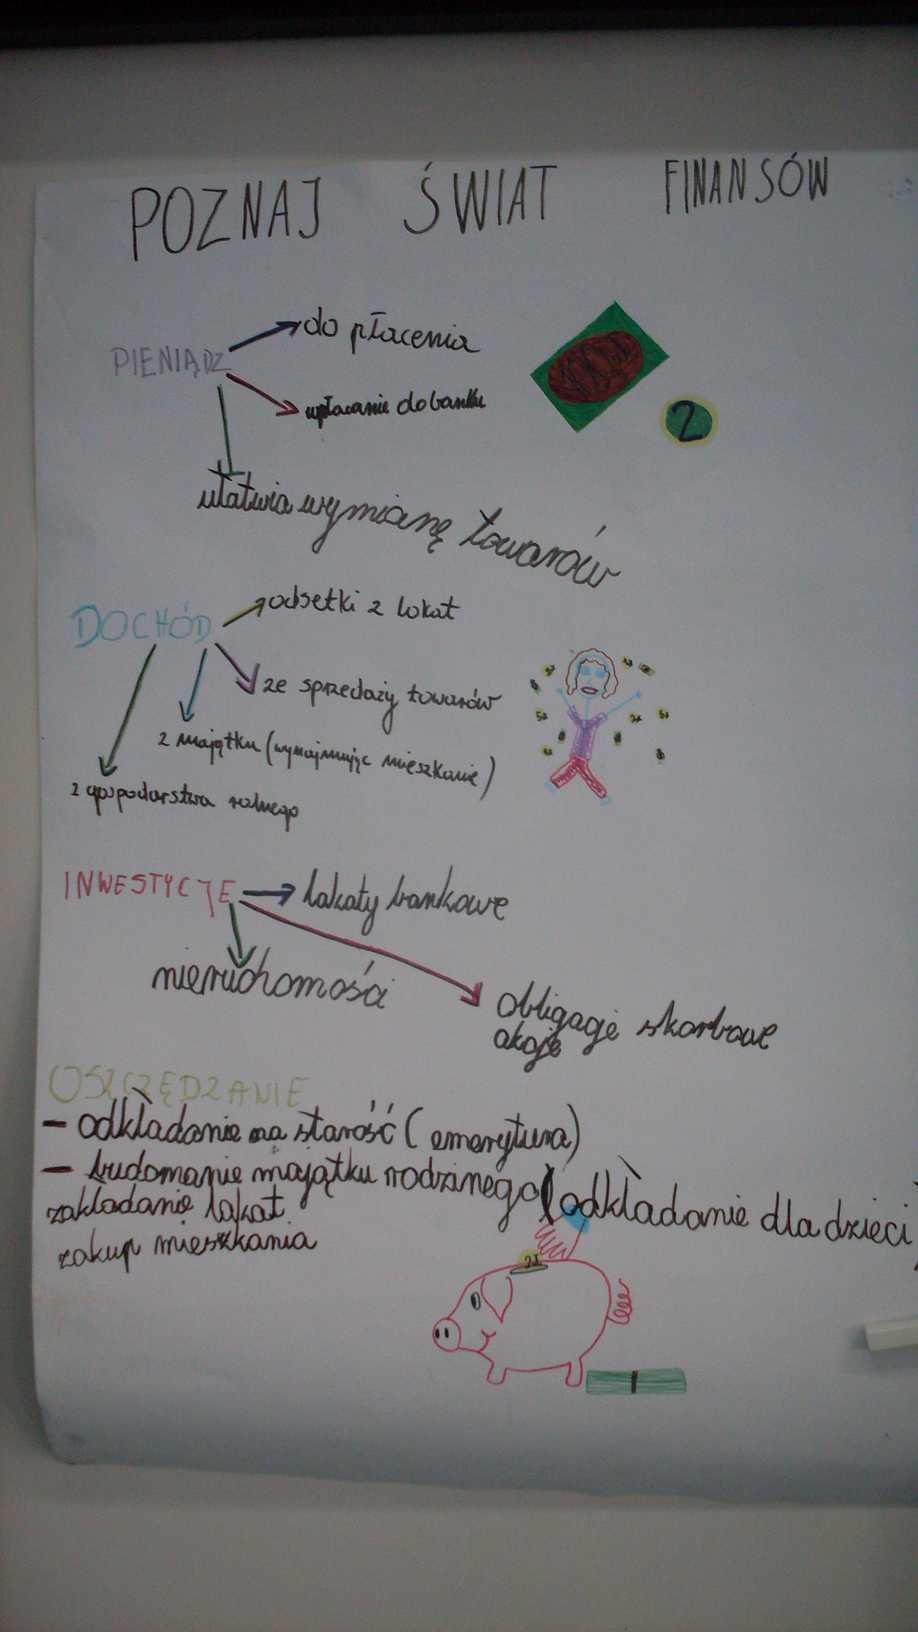 POZNAJ ŚWIAT FINANSÓW
PIENIĄDZ
do płacenia
wpłacanie do banku
2
ułatwia wymianę towarów
DOCHÓD
odsetki z lokat
ze sprzedaży towarów
z majątku (wynajmując mieszkanie)
z gospodarstwa rolnego
INWESTYCJE
lokaty bankowe
nieruchomości
obligacje skarbowe
akcje
OSZCZĘDZANIE
- odkładanie na starość (emerytura)
- budowanie majątku rodzinnego (odkładanie dla dzieci)
zakładanie lokat
zakup mieszkania